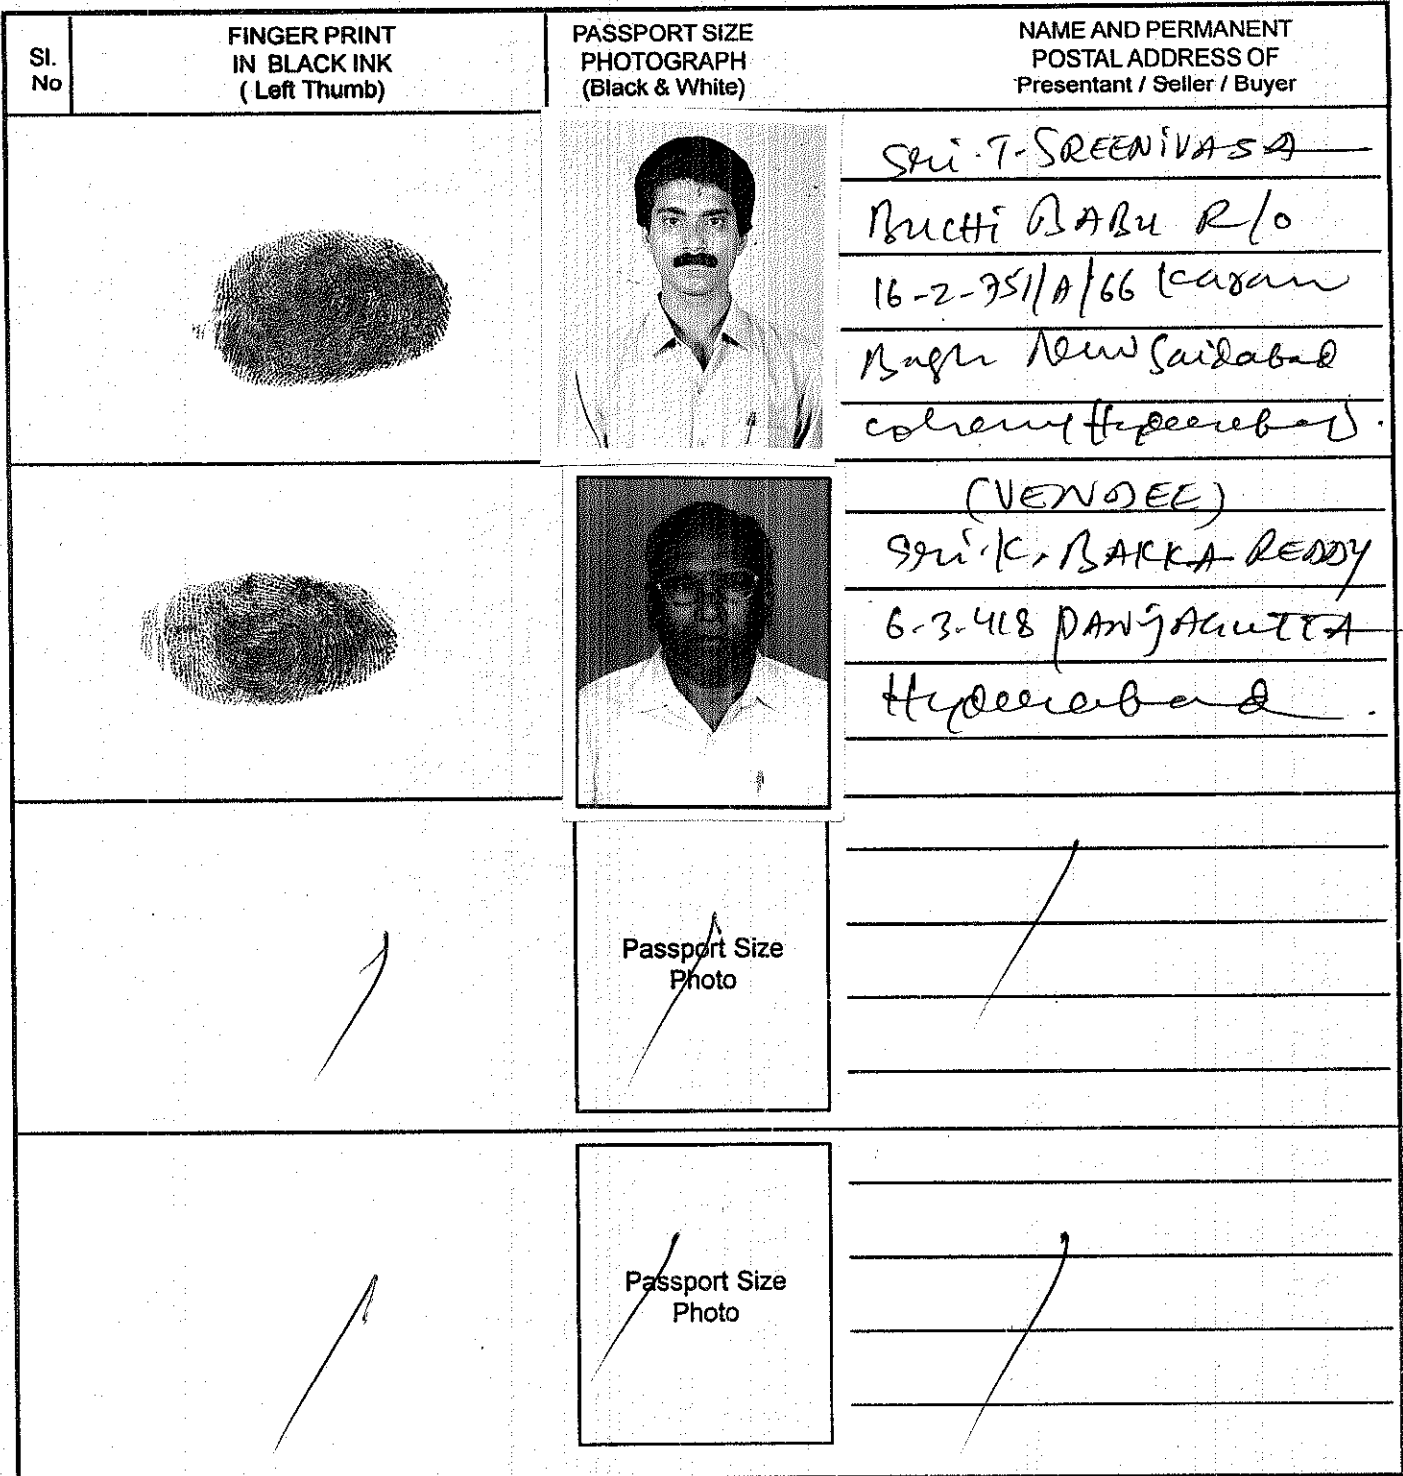 Sl. No
FINGER PRINT
IN BLACK INK
( Left Thumb)
PASSPORT SIZE
PHOTOGRAPH
(Black & White)
NAME AND PERMANENT
POSTAL ADDRESS OF
Presentant / Seller / Buyer
Sri. T. SREENIVASA
BUCHI BABU R/o
16-2-751/A/66 Karan
Bagh New Saidabad
colony Hyderabad.
(VENDEE)
Sri. K. BAKKA REDDY
6-3-418 PANJAGUTTA
Hyderabad.
Passport Size
Photo
Passport Size
Photo